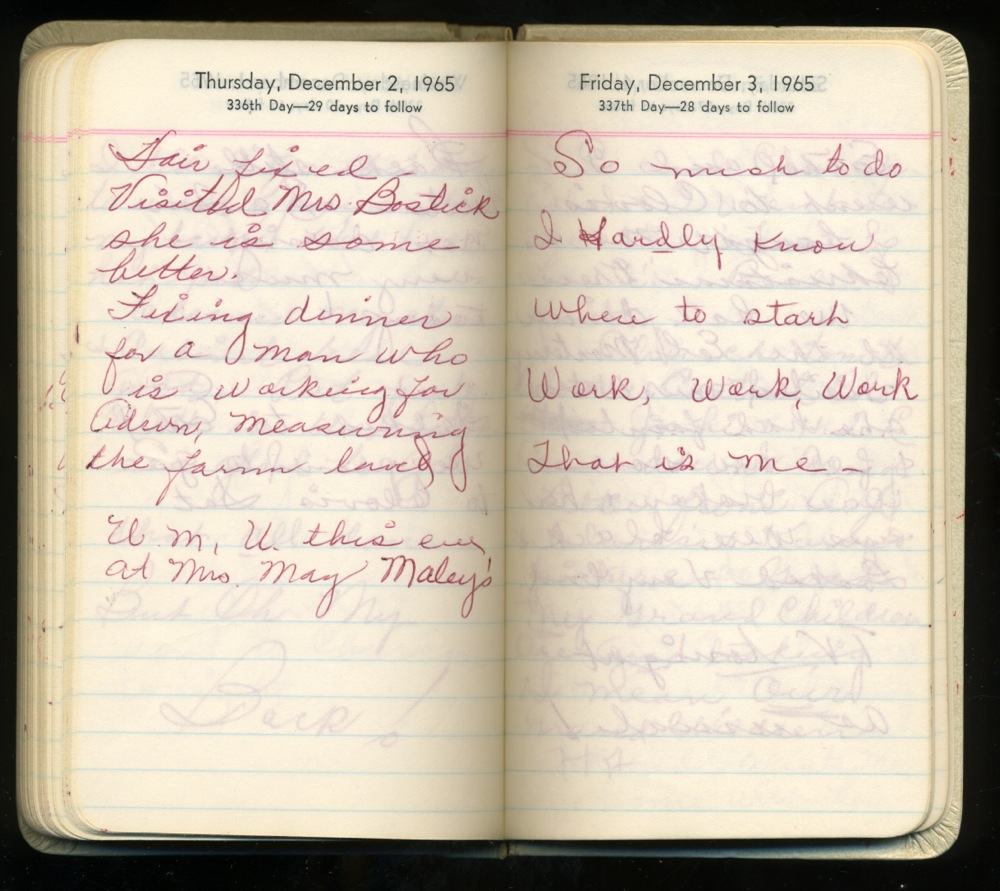 Thursday, December 2, 1965
336th Day—29 days to follow
Hair fixed
Visited Mrs. Bostick
she is some
better.
Fixing dinner
for a man who
is working for
measuring
the farm land
W. M. U. this eve
at Mrs. May Maley's
But Oh My
Back!
Friday, December 3, 1965
337th Day—28 days to follow
So much to do
I Hardly Know
where to start
Work, Work, Work
That is me –